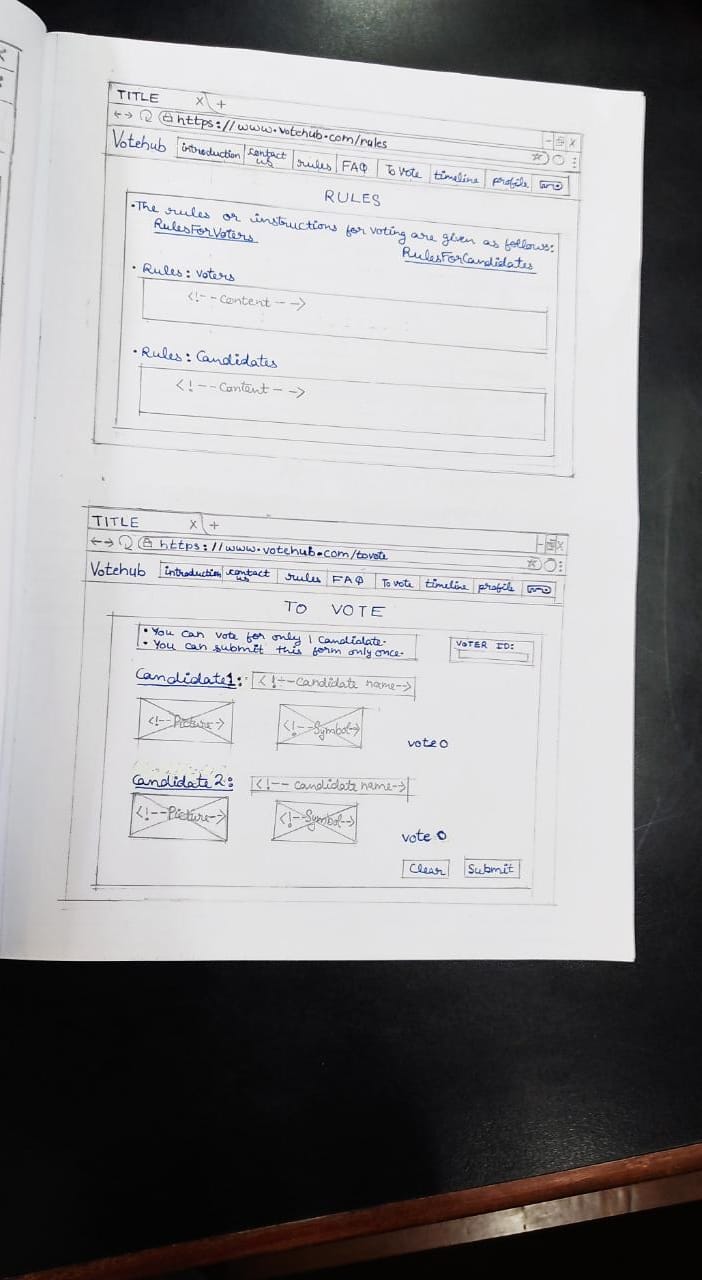 TITLE X +
https://www.votehub.com/rules
Votehub introduction contact us rules FAQ To Vote timeline profile
RULES
•The rules or instructions for voting are given as follows:
RulesForVoters RulesForCandidates
• Rules: voters
<!--content-->
• Rules: Candidates
<!--Content-->
TITLE X +
https://www.votehub.com/tovote
Votehub introduction contact us rules FAQ To vote timeline profile
TO VOTE
• You can vote for only 1 candidate.
• You can submit this form only once.
VOTER ID:
Candidate1: <!--candidate name-->
<!--Picture--> <!--Symbol-->
vote O
Candidate 2: <!-- candidate name-->
<!--Picture--> <!--Symbol-->
vote O
Clear Submit